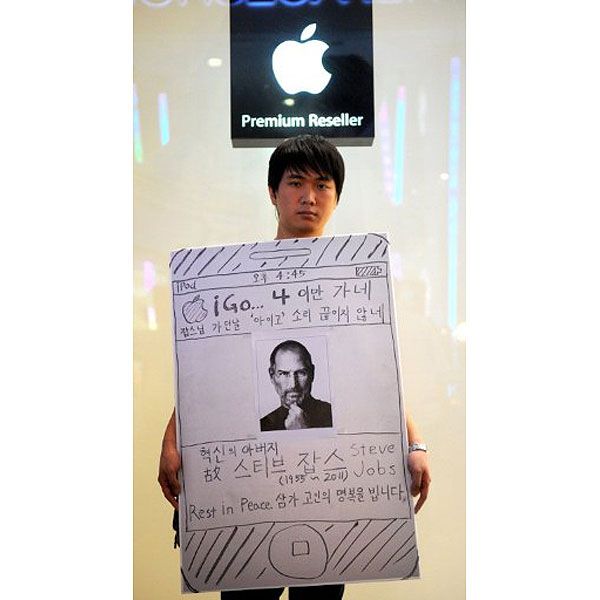 Premium Reseller
iPod 오후 4:45
iGo... 4 이만 가네
잡스님 가던날 '아이고' 소리 끊이지 않네
혁신의 아버지
故 스티브 잡스 Steve Jobs
(1955~2011)
Rest in Peace. 삼가 고인의 명복을 빕니다.